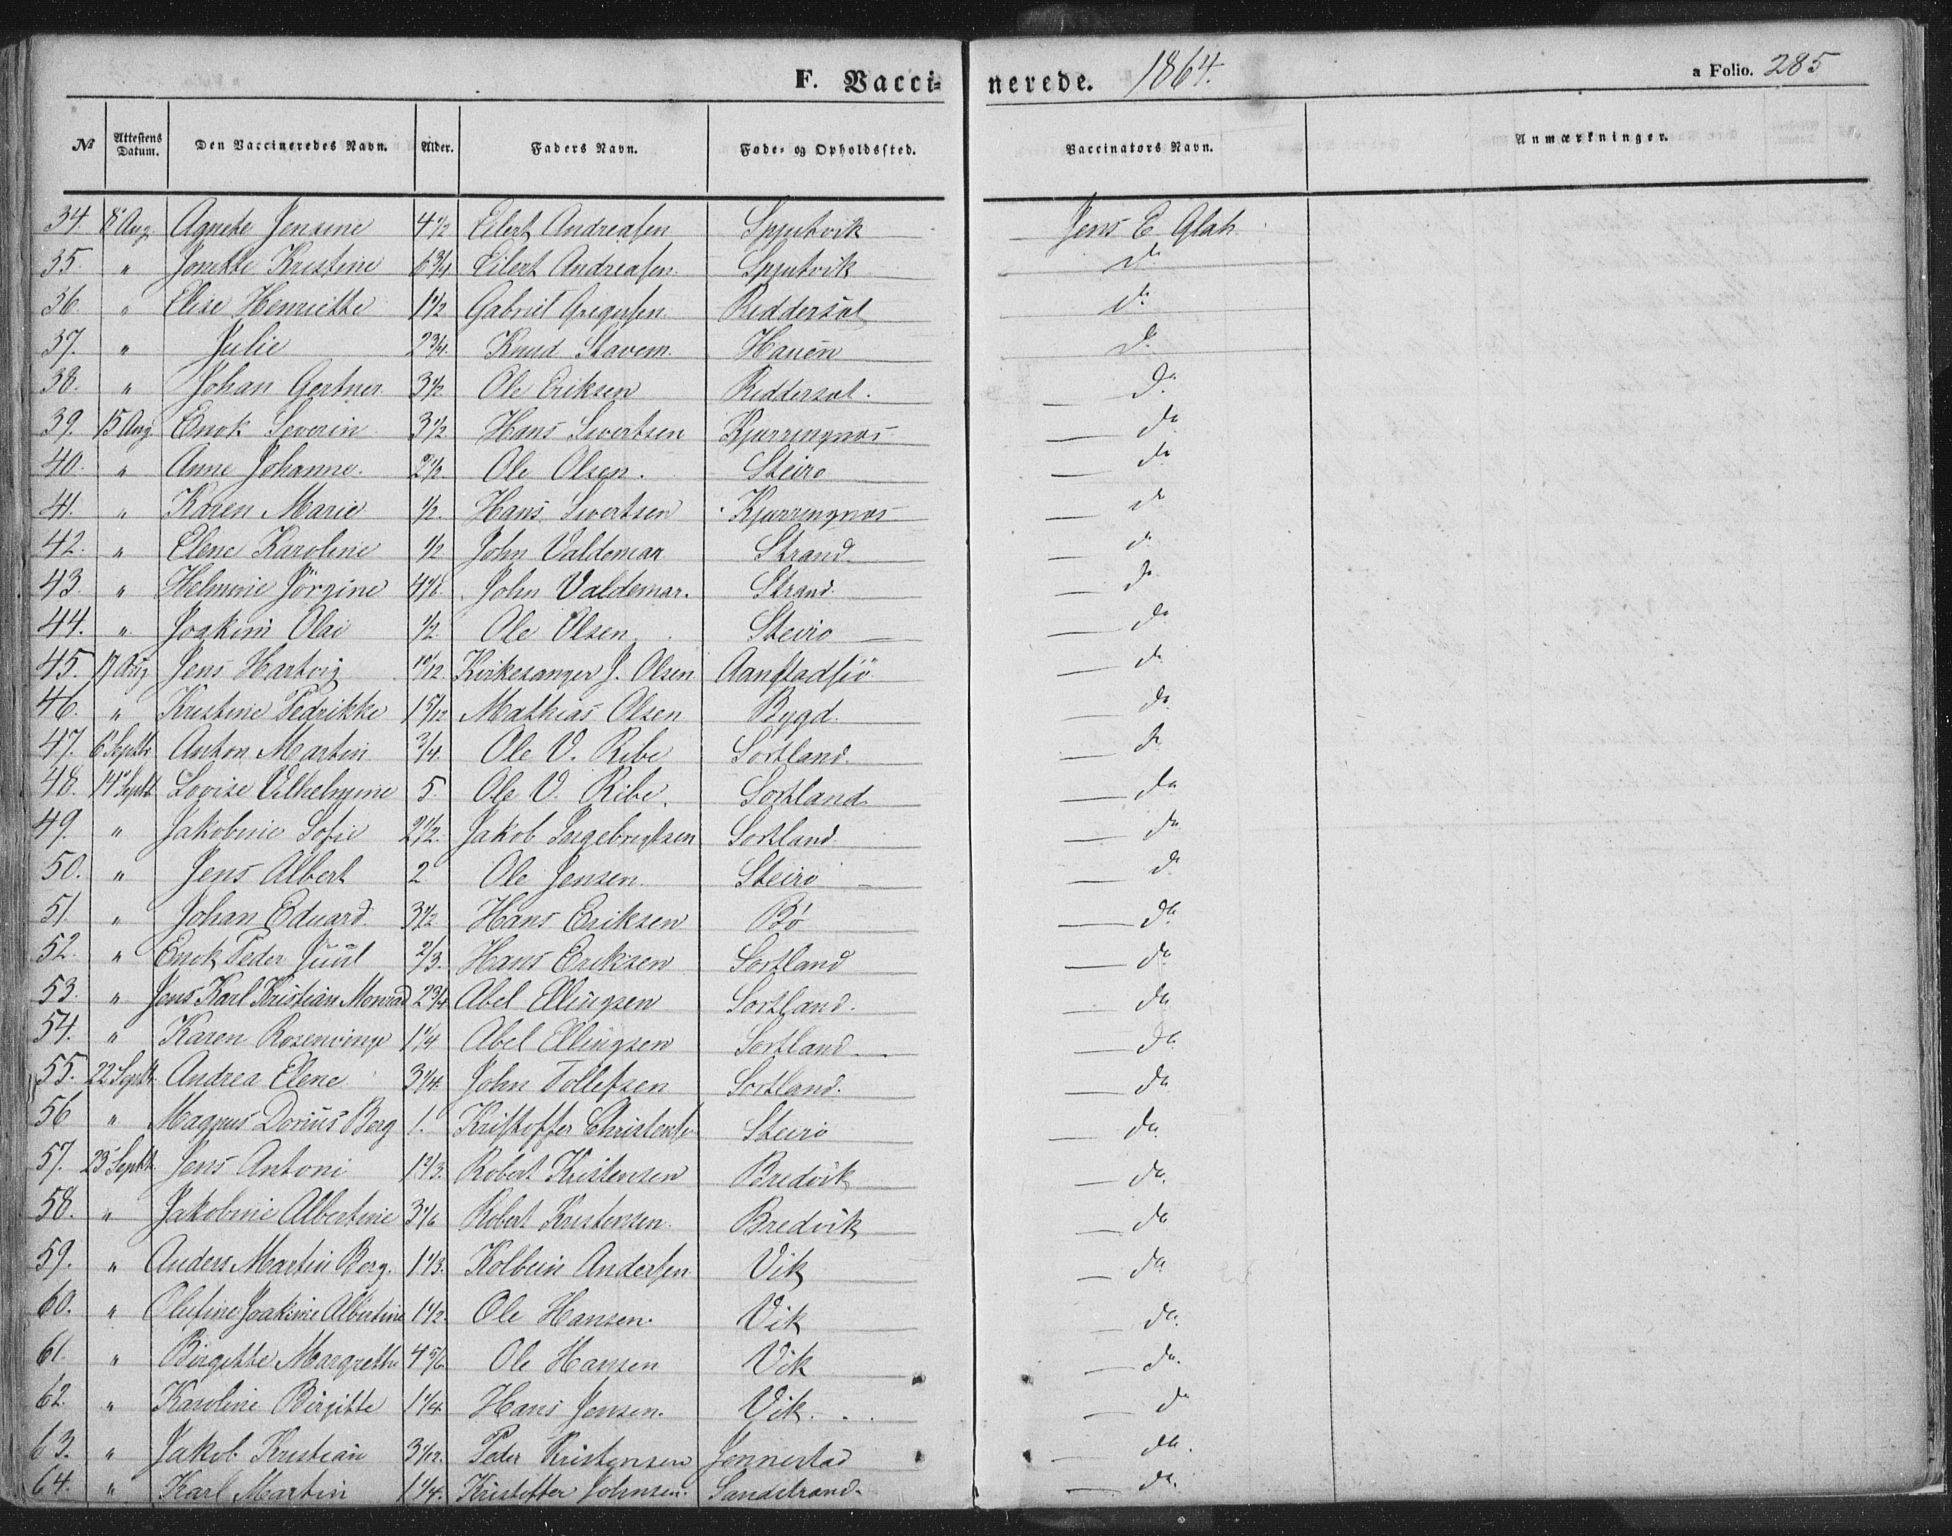 F. Vacci-nerede. 1864. a Folio. 285
№ Attestens Datum. Den Vaccineredes Navn. Alder. Faders Navn. Føde- og Opholdssted. Vaccinators Navn. Anmærkninger.
34. 8 Aug Agnete Jensine 4 1/2 Eilert Andreasen Spjutvik Jens E Glah
35. " Jonette Kristine 6 3/4 Eilert Andreasen. Spjutvik do
36. " Elise Henriette 1 1/2 Gabriel Gregersen Riddersal do
37. " Julie 2 3/4. Knud Stavem. Hauen do
38. " Johan Gertner 3 1/2 Ole Eriksen Riddersal. do
39. 15 Aug Enok Severin 3 1/2 Hans Sivertsen Kjærringnæs do
40. " Anne Johanne. 2 1/2 Ole Olsen. Steiro do
41. " Karen Marie 1/2. Hans Sivertsen Kjærringnæs do
42. " Elene Karoline 1/2 John Valdemar Strand do
43 " Helmine Jörgine 4 1/6. John Valdemar. Strand. do
44. " Joakim Olai 1/2. Ole Olsen. Steiro do
45. 17 Aug Jens Hartvig 10/12. Kirkesanger J. Olsen Aanstadsjö do
46. " Kristine Pedrikke 1 5/12 Mathias Olsen Bygd. do
47. 6 Septbr Anton Martin 3/4. Ole V. Ribe Sortland. do
48. 14 Septbr Lovise Vilhelmine 5. Ole V. Ribe. Sortland. do
49. " Jakobine Sofie 2 1/2. Jakob Ingebrigtsen Sortland do
50. " Jens Albert 2 Ole Jensen Steiro do
51 " Johan Eduard. 3 1/2 Hans Eriksen Bø do
52. " Enok Peder Juul 2/3. Hans Eriksen Sortland do
53. " Jens Karl Kristian Monrad 2 3/4 Abel Ellingsen Sortland. do
54. " Karen Rosenvinge 1 1/4 Abel Ellingsen Sortland. do
55. 22 Septbr. Andrea Elene 3 1/4. John Tollefsen Sortland. do
56 " Magnus Dorius Berg 1. Kristoffer Steiro do
57. 23 Septbr. Jens Antoni 1 1/3. Robert Kristensen Bredvik do.
58. " Jakobine Albertine 3 1/6 Robert Kristensen. Bredvik do
59. " Anders Martin Berg. 1 1/3. Kolbein Andersen Vik do
60. " Olufine Joakime Albertine 1 1/2. Ole Hansen. Vik do.
61. " Birgitte Margrethe 4 5/6 Ole Hansen Vik do.
62. " Karoline Birgitte 1 1/4. Hans Jensen. Vik. do
63. " Jakob Kristian 3 1/12. Peder Kristensen Jennestad do.
64. " Karl Martin 1 1/4. Kristoffer Johnsen. Sandstrand. do.